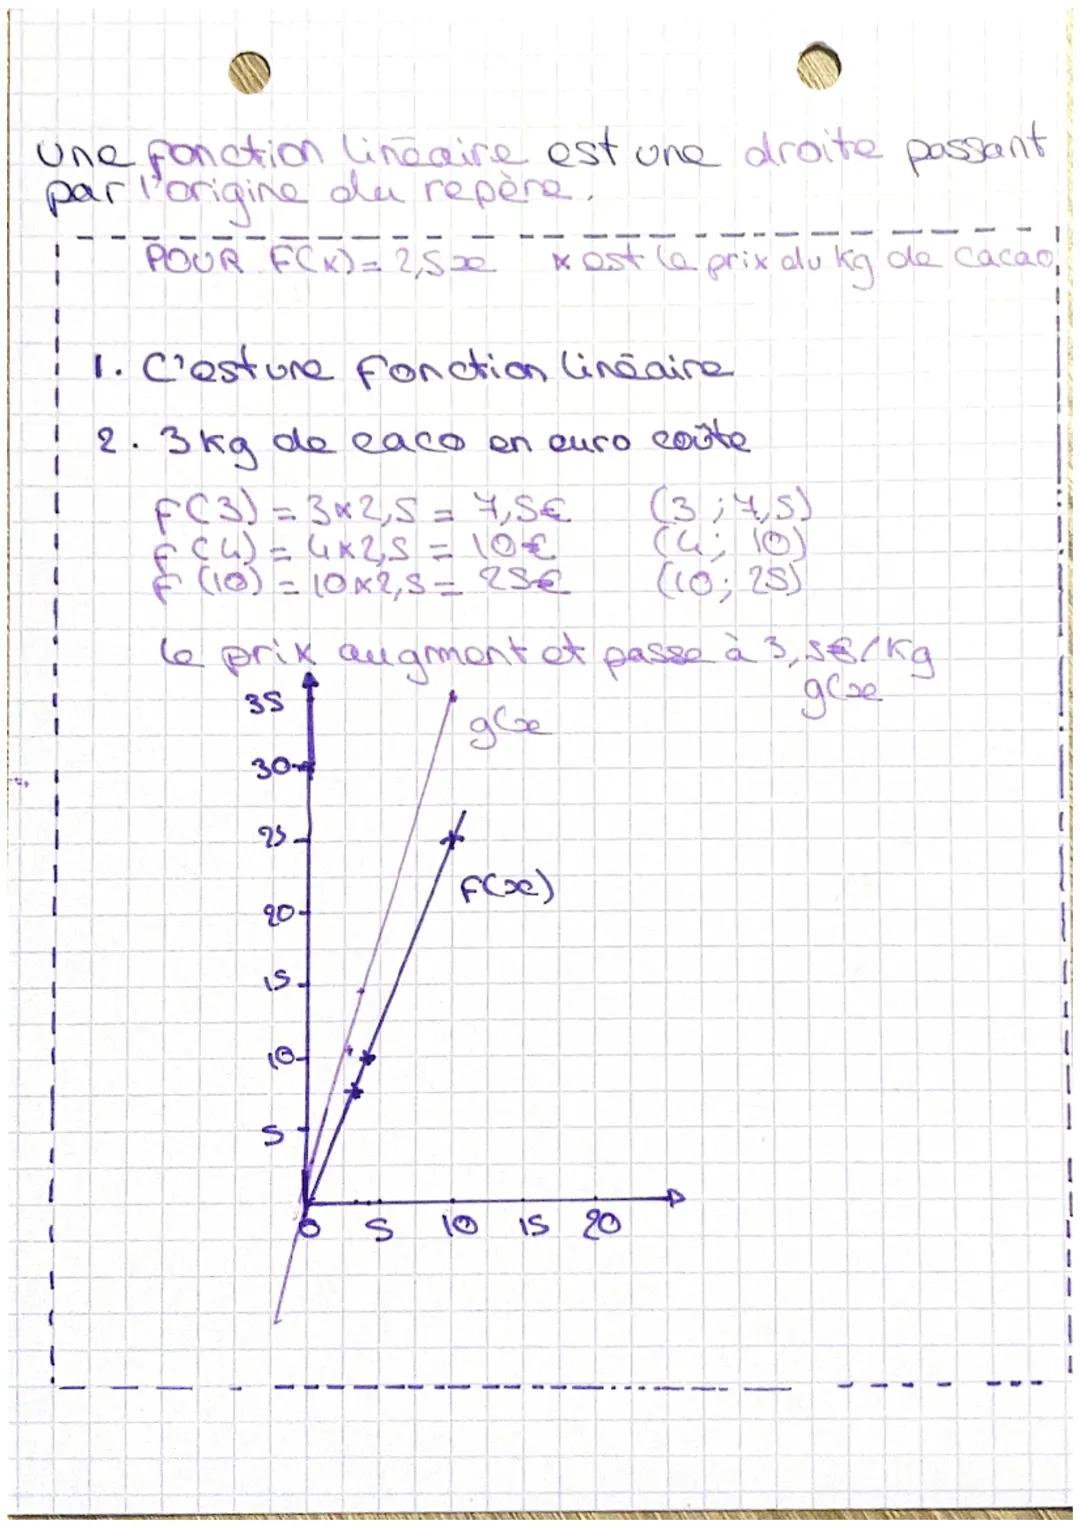 une fonction linéaire est une droite passant
par l'origine du repère.
POUR F(x) = 2,5x x est le prix du kg de cacao
1. C'est une fonction linéaire
2. 3 kg de caco en euro coûte
F(3) = 3x2,5 = 7,5€ (3 ; 7,5)
F(4) = 4x2,5 = 10€ (4 ; 10)
F(10) = 10x2,5 = 25€ (10 ; 25)
le prix augment et passe à 3,5€/kg
g(x
35
g(x
30
25
F(x)
20
15
10
5
0 5 10 15 20